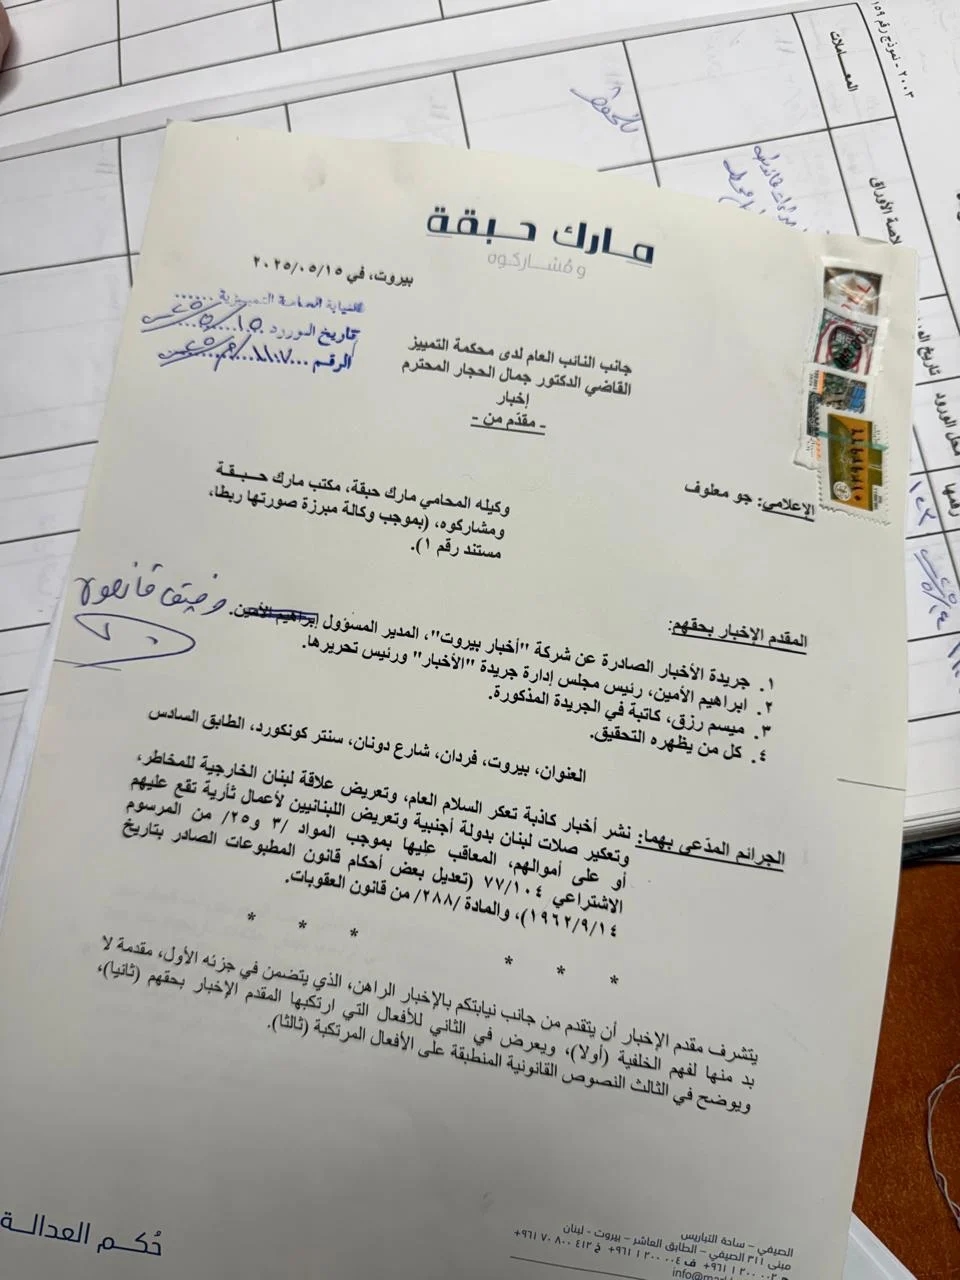 ٢٠٠٣ - نموذج رقم ١٥٩
المعـــاملات
للحفظ
مـارك حـبـقة
ومُشـاركوه
بيروت، في ٢٠٢٥/٠٥/١٥
النيابة العامة التمييزية
تاريخ الورود ١٥
الرقم
جانب النائب العام لدى محكمة التمييز
القاضي الدكتور جمال الحجار المحترم
إخبار
- مقدّم من -
الإعلامي: جو معلوف
وكيله المحامي مارك حبقة، مكتب مارك حـبـقـة
ومشاركوه، (بموجب وكالة مبرزة صورتها ربطا،
مستند رقم ١).
المقدم الإخبار بحقهم:
١. جريدة الأخبار الصادرة عن شركة "أخبار بيروت"، المدير المسؤول إبراهيم الأمين.
وفيق قانصوه
٢. ابراهيم الأمين، رئيس مجلس إدارة جريدة "الأخبار" ورئيس تحريرها.
٣. ميسم رزق، كاتبة في الجريدة المذكورة.
٤. كل من يظهره التحقيق.
العنوان، بيروت، فردان، شارع دونان، سنتر كونكورد، الطابق السادس
الجرائم المدّعى بهما: نشر أخبار كاذبة تعكر السلام العام، وتعريض علاقة لبنان الخارجية للمخاطر،
وتعكير صلات لبنان بدولة أجنبية وتعريض اللبنانيين لأعمال ثأرية تقع عليهم
أو على أموالهم، المعاقب عليها بموجب المواد /٣ و٢٥/ من المرسوم
الاشتراعي ٧٧/١٠٤ (تعديل بعض أحكام قانون المطبوعات الصادر بتاريخ
١٩٦٢/٩/١٤)، والمادة /٢٨٨/ من قانون العقوبات.
* * * * * *
يتشرف مقدم الإخبار أن يتقدم من جانب نيابتكم بالإخبار الراهن، الذي يتضمن في جزئه الأول، مقدمة لا
بد منها لفهم الخلفية (أولا)، ويعرض في الثاني للأفعال التي ارتكبها المقدم الإخبار بحقهم (ثانيا)،
ويوضح في الثالث النصوص القانونية المنطبقة على الأفعال المرتكبة (ثالثا).
حُكـم العدالـة
الصيفي – ساحة التباريس
مبنى ٣١١ الصيفي – الطابق العاشر – بيروت - لبنان